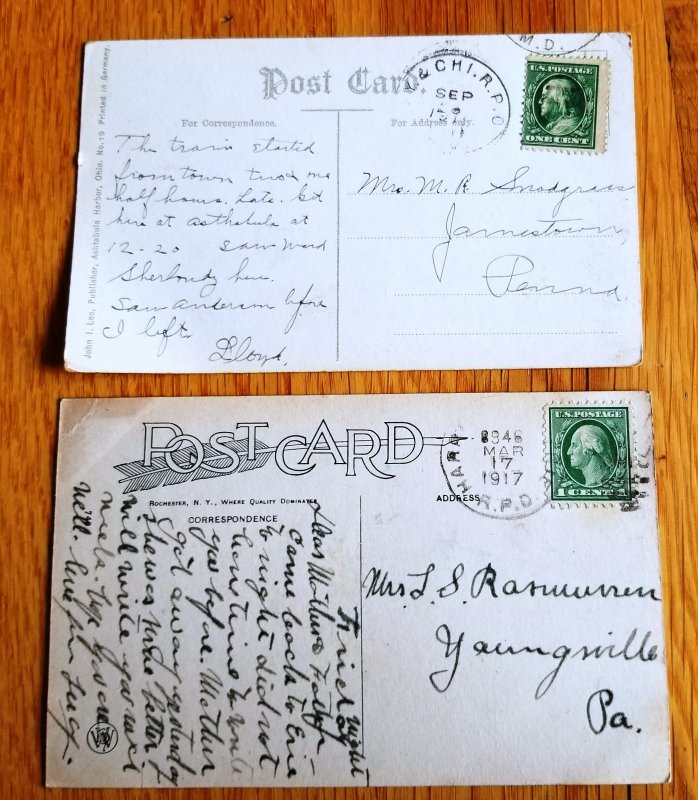 Post Card.
For Correspondence.
For Address only.
John I. Lee, Publisher, Ashtabula Harbor, Ohio. No. 19 Printed in Germany.
M.D.
& CHI. R.P.O
SEP
U.S. POSTAGE
ONE CENT
The train started
from town two
half hours. Late.
here at at
12-20 saw Ward
here.
Saw Anderson before
I left
Lloyd.
Mrs. M. R. Snodgrass
Jamestown,
Penna.
POST CARD
ROCHESTER, N. Y., WHERE QUALITY DOMINATES
CORRESPONDENCE
ADDRESS
MAR
17
1917
R.P.O
U.S. POSTAGE
1 CENT
night
Dear Mother & Father –
came back to Erie
to night did not
have time to write
you before. Mother
got away yesterday
She was some better
will write you next
week. hope you are
well. Love from Lucy.
Mrs. L. S. Rasmussen
Youngsville
Pa.